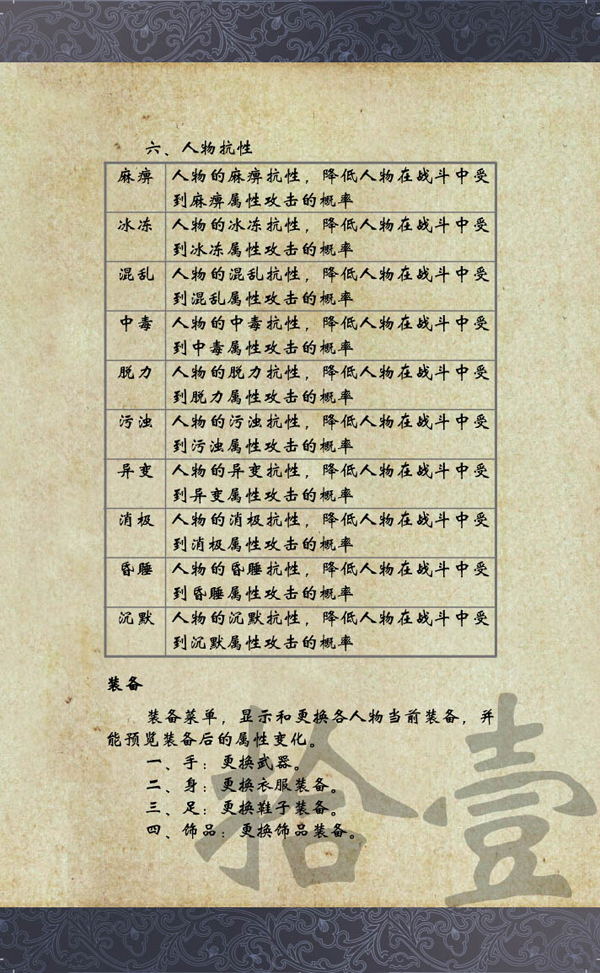 六、人物抗性
麻痹 人物的麻痹抗性，降低人物在战斗中受
到麻痹属性攻击的概率
冰冻 人物的冰冻抗性，降低人物在战斗中受
到冰冻属性攻击的概率
混乱 人物的混乱抗性，降低人物在战斗中受
到混乱属性攻击的概率
中毒 人物的中毒抗性，降低人物在战斗中受
到中毒属性攻击的概率
脱力 人物的脱力抗性，降低人物在战斗中受
到脱力属性攻击的概率
污浊 人物的污浊抗性，降低人物在战斗中受
到污浊属性攻击的概率
异变 人物的异变抗性，降低人物在战斗中受
到异变属性攻击的概率
消极 人物的消极抗性，降低人物在战斗中受
到消极属性攻击的概率
昏睡 人物的昏睡抗性，降低人物在战斗中受
到昏睡属性攻击的概率
沉默 人物的沉默抗性，降低人物在战斗中受
到沉默属性攻击的概率
装备
装备菜单，显示和更换各人物当前装备，并
能预览装备后的属性变化。
一、手：更换武器。
二、身：更换衣服装备。
三、足：更换鞋子装备。
四、饰品：更换饰品装备。
拾壹